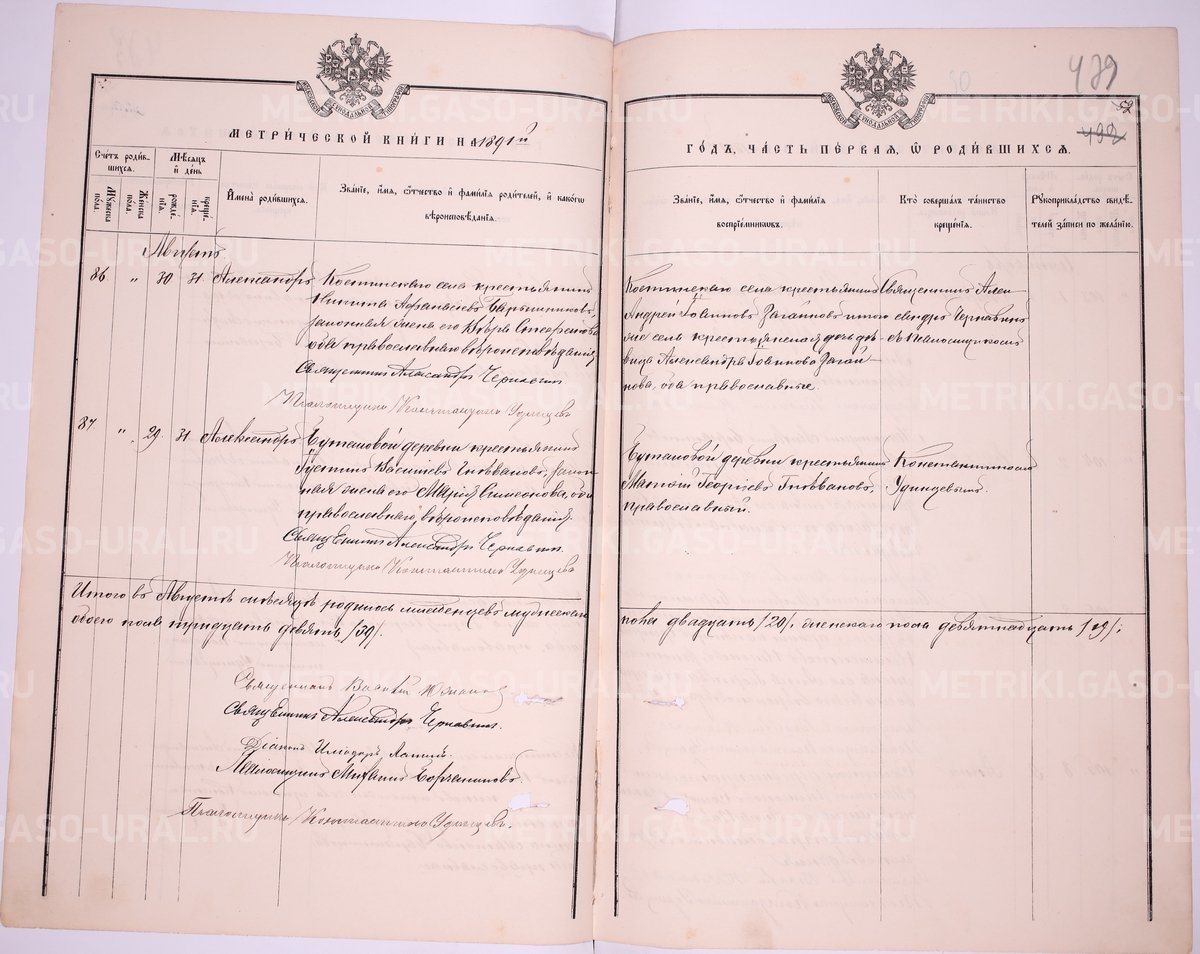 МЕТРИ́ЧЕСКОЙ КНИ́ГИ НА 1891й
Счетъ роди́вшихсѧ.
Мѣ́сѧцъ и҆ де́нь
Мꙋжеска пола.
Женска пола.
рожде́нїѧ.
креще́нїѧ.
И҆мена̀ роди́вшихсѧ.
Зва́нїе, и҆́мѧ, ѻ҆́тчество и҆ фами́лїѧ роди́телей, и҆ како́гѡ вѣроисповѣ́данїѧ.
Августъ
86 " 30 31 Александръ
Костинскаго села крестьянинъ
Никита Афанасіевъ
законная жена его Вѣра Стефанова
оба православнаго вѣроисповѣданія
Священникъ Александръ Чернавинъ
Псаломщикъ Константинъ Удинцевъ
87 " 29 31 Александръ
деревни крестьянинъ
Іустинъ Васильевъ Гнѣвановъ, закон-
ная жена его Марія Симеонова, оба
православнаго вѣроисповѣданія.
Священникъ Александръ Чернавинъ.
Псаломщикъ Константинъ Удинцевъ
Итого въ Августѣ мѣсяцѣ родилось младенцевъ мужескаго
обоего пола тридцать девять /39/.
Священникъ
Священникъ Александръ Чернавинъ.
Діаконъ
Псаломщикъ Михаилъ
Псаломщикъ Константинъ Удинцевъ.
489
52
492
ГО́ДЪ, ЧА́СТЬ ПЕ́РВАЯ, Ѡ҆ РОДИ́ВШИХСѦ.
Зва́нїе, и҆́мѧ, ѻ҆́тчество и҆ фами́лїѧ воспрїе́мникѡвъ.
Кто̀ соверша́лъ та́инство креще́нїѧ.
Рꙋкоприкла́дство свидѣ́телей за́писи по жела́нїю.
Костинскаго села крестьянинъ
Андрей Іоанновъ Загайновъ и того
же села крестьянская дочь дѣ-
вица Александра Іоаннова Загай-
нова, оба православные.
Священникъ Алек-
сандръ Чернавинъ
съ псаломщикомъ
деревни крестьянинъ
Георгіевъ Гнѣвановъ,
православный.
Константиномъ
Удинцевымъ.
пола двадцать /20/, женскаго пола девятнадцать /19/;